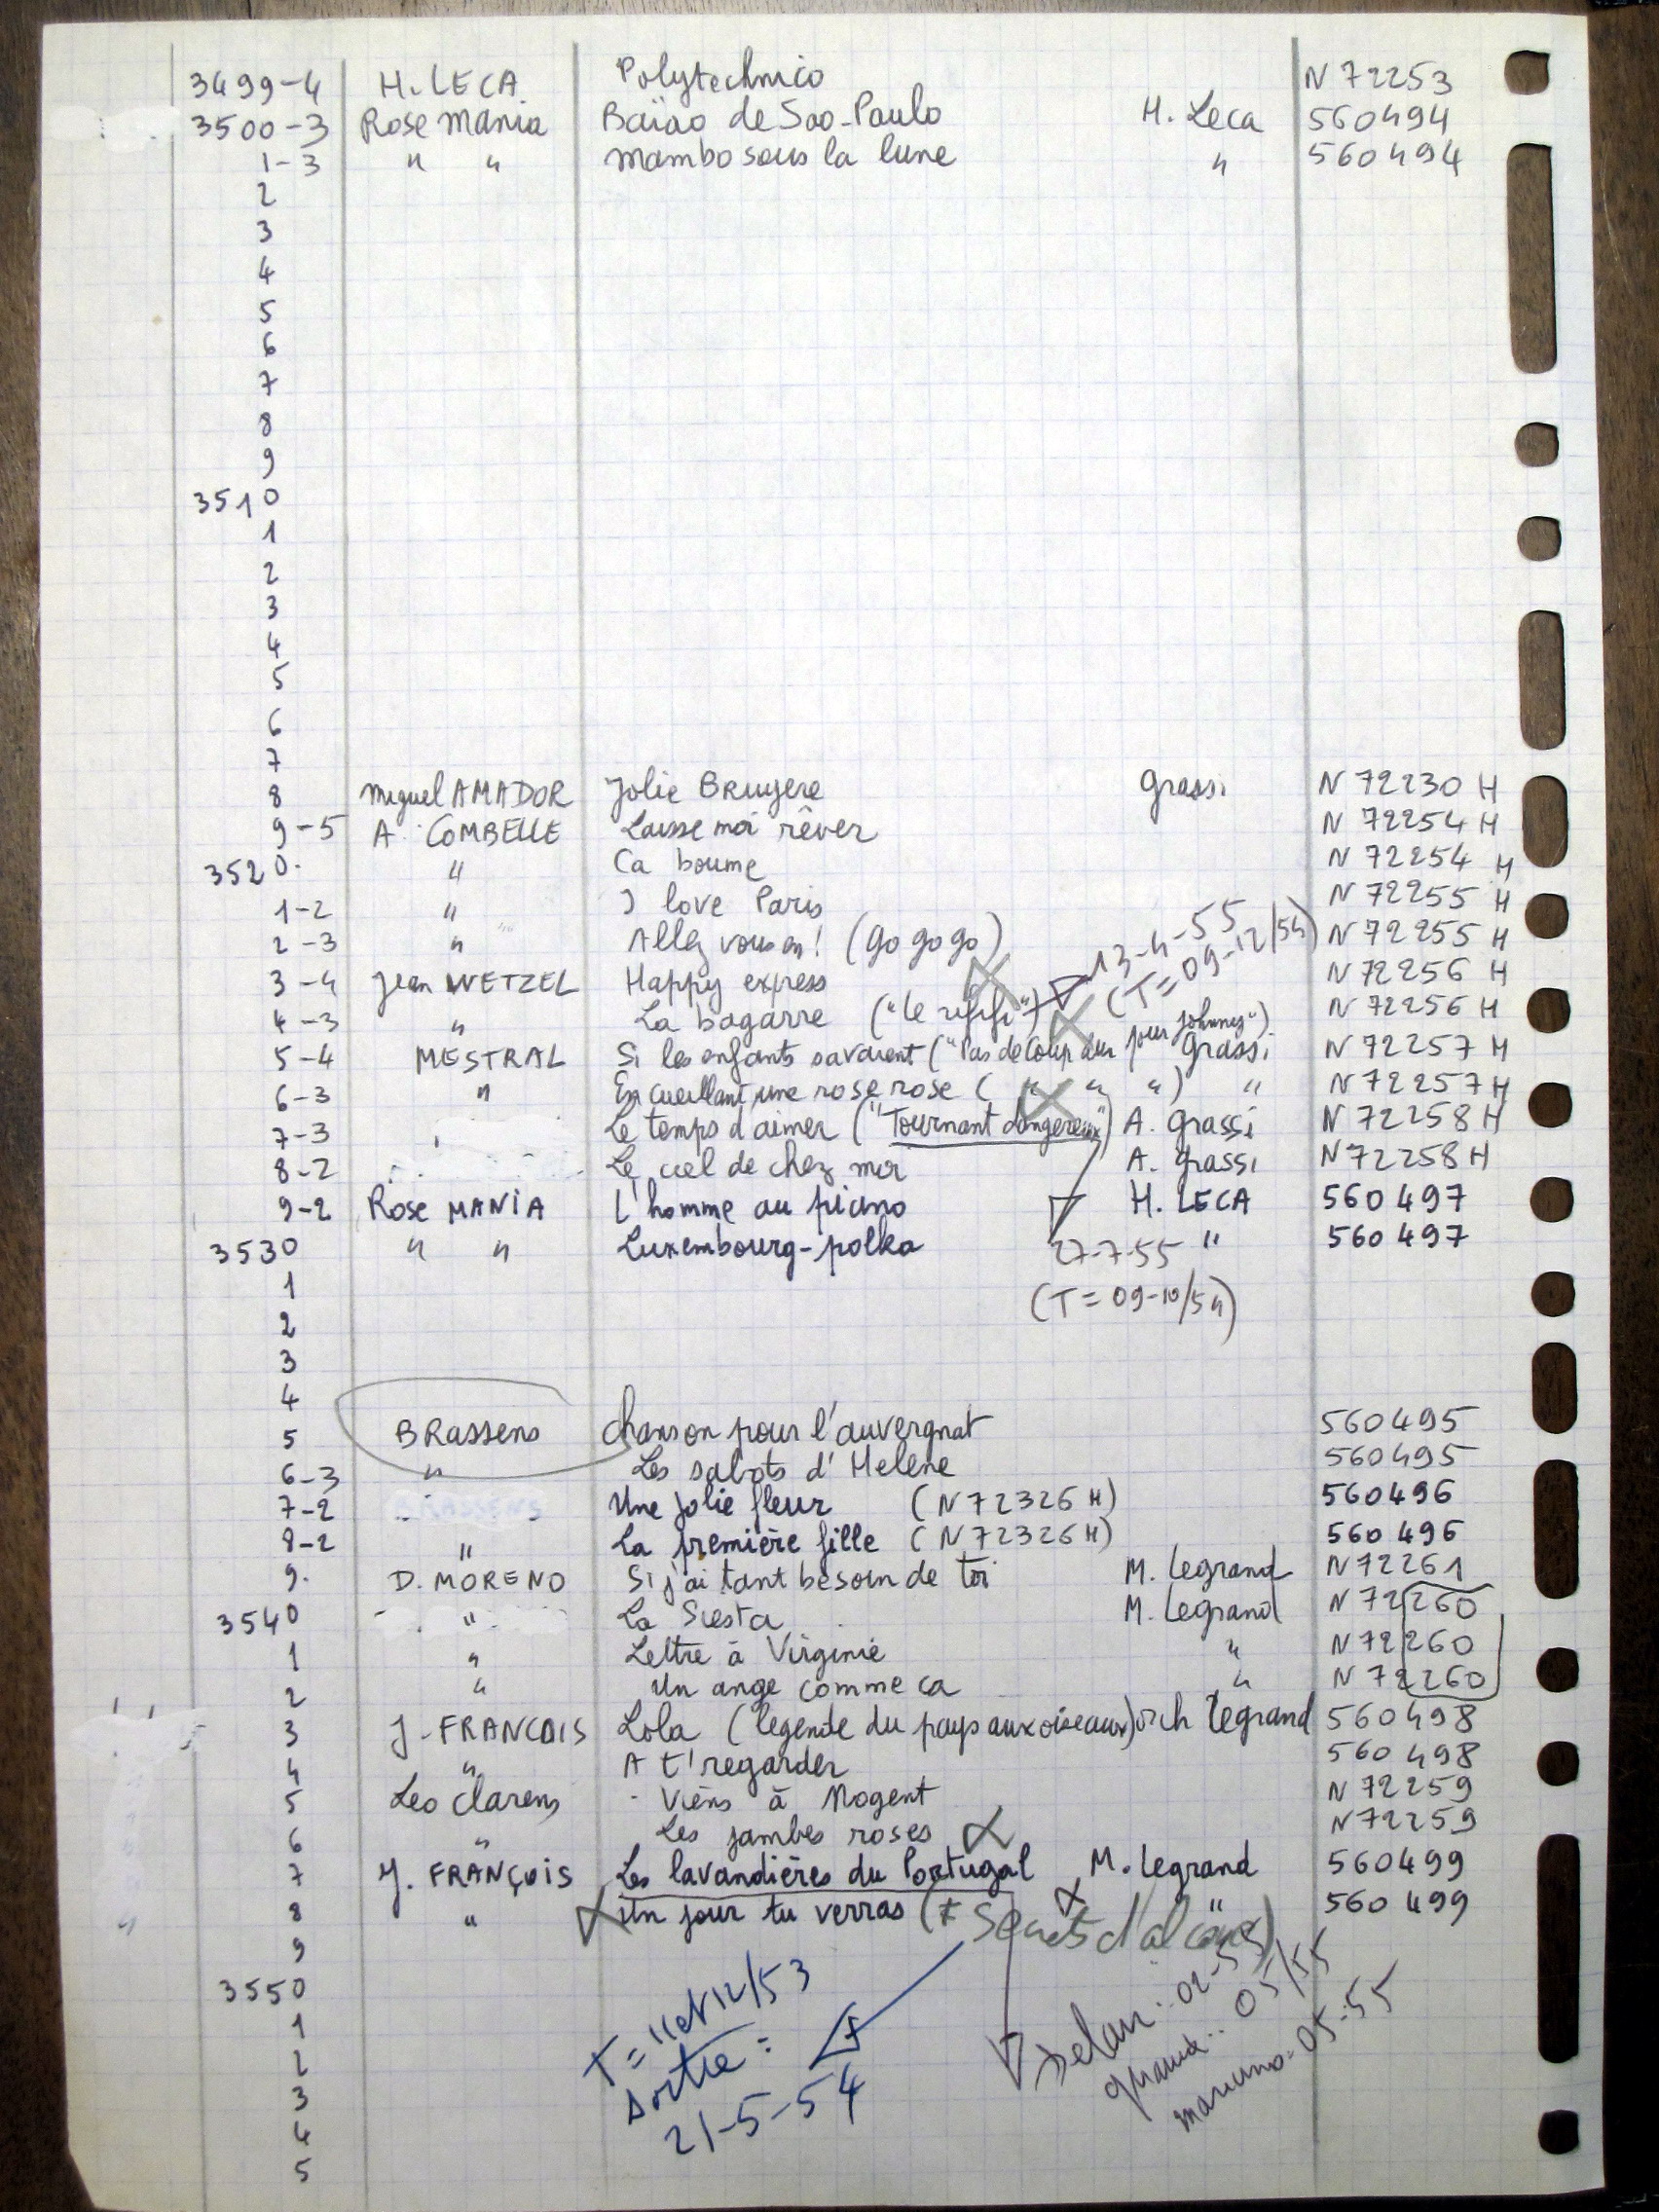 3499-4 H. LECA Polytechnico N 72253
3500-3 Rose Mania Baïao de Sao-Paulo H. Leca 560494
1-3 " " Mambo sous la lune " 560494
2
3
4
5
6
7
8
9
3510
1
2
3
4
5
6
7
8 Miguel AMADOR Jolie Bruyere Grassi N 72230 H
9-5 A. COMBELLE Laisse moi rêver N 72254 H
3520. " Ca boume N 72254 H
1-2 " I love Paris N 72255 H
2-3 " Allez vous en! (go go go) N 72255 H
13-4-55
(T=09-12/54)
3-4 Jean WETZEL Happy express N 72256 H
4-3 " La bagarre ("le rififi") N 72256 H
5-4 MESTRAL Si les enfants savaient ("Pas de coup dur pour Johnny") Grassi N 72257 H
6-3 " En cueillant une rose rose ( " " ") " N 72257 H
7-3 Le temps d'aimer ("Tournant dangereux") A. Grassi N 72258 H
8-2 Le ciel de chez moi A. Grassi N 72258 H
9-2 Rose MANIA L'homme au piano H. LECA 560 497
3530 " " Luxembourg-polka " 560 497
27-7-55
1 (T=09-10/54)
2
3
4
5 BRassens chanson pour l'auvergnat 560495
6-3 " Les sabots d'Helene 560495
7-2 BRASSENS Une jolie fleur (N 72326 H) 560496
8-2 " La première fille (N 72326 H) 560 496
9. D. MORENO Si j'ai tant besoin de toi M. Legrand N 72261
3540 " La Siesta M. Legrand N 72260
1 " Lettre à Virginie " N 72260
2 " Un ange comme ca " N 72260
3 J. FRANCOIS Lola (legende du pays aux oiseaux) orch Legrand 560498
4 " A t'regarder 560 498
5 Leo Clarens - Viens à Nogent N 72259
6 " Les jambes roses N 72259
7 J. FRANÇOIS Les lavandières du Portugal M. Legrand 560499
8 " Un jour tu verras (≠ Secrets d'alcove) " 560 499
9
3550
1
2
3
4
5
T=11et12/53
sortie:
21-5-54
02-55
05/55
mariano: 05-55